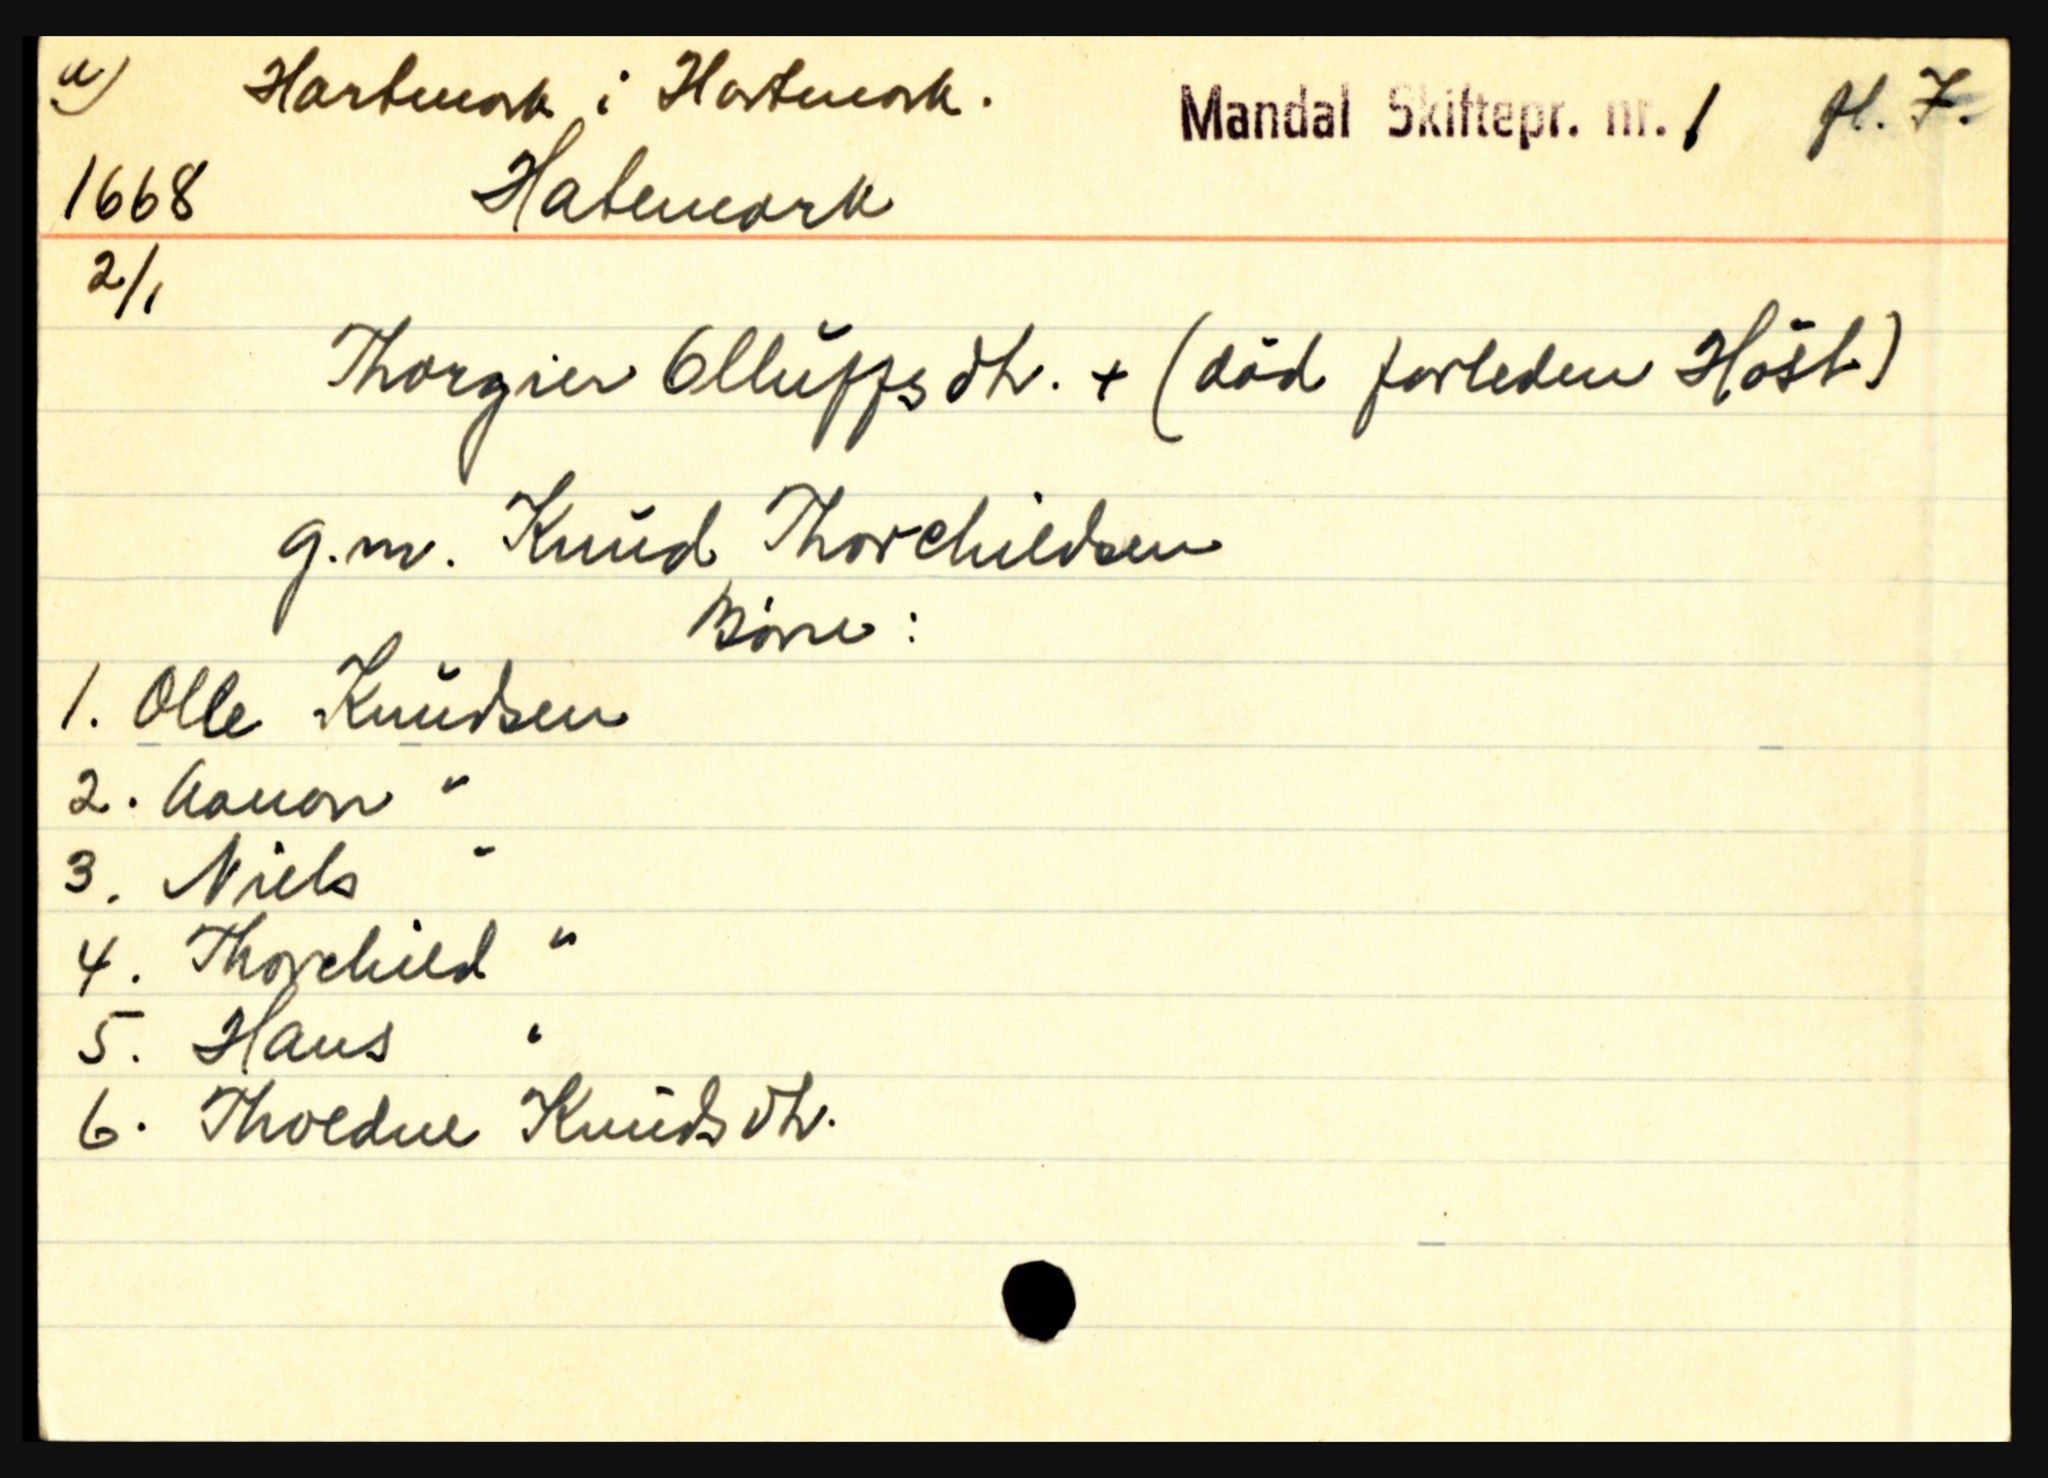 u) Hartmark i Hartmark. Mandal Skiftepr. nr. 1 fl. 7.
1668 Hatemark
2/1
Thorgier Olluffsdtr. + (död forleden Höst)
g.m. Knud Thorchildsen
Börn:
1. Olle Knudsen
2. Aanon "
3. Niels "
4. Thorchild "
5. Hans "
6. Thoedne Knudsdtr.